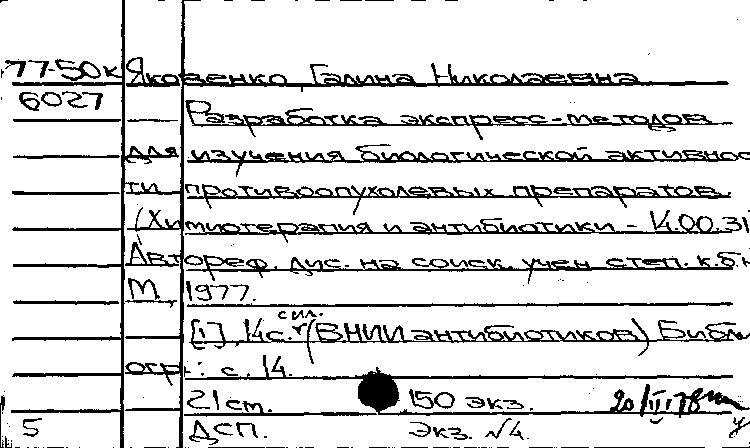 77-50к Яковенко, Галина Николаевна
6027 Разработка экспресс-методов
для изучения биологической активнос
ти противоопухолевых препаратов.
(Химиотерапия и антибиотики - 14.00.31)
Автореф. дис. на соиск. учен степ. к.б.н
М, 1977.
сил.
[1], 14с. (ВНИИ антибиотиков) Библи
огр.: с. 14.
21 см. 150 экз. 20/II 78
5 ДСП. Экз. №4.